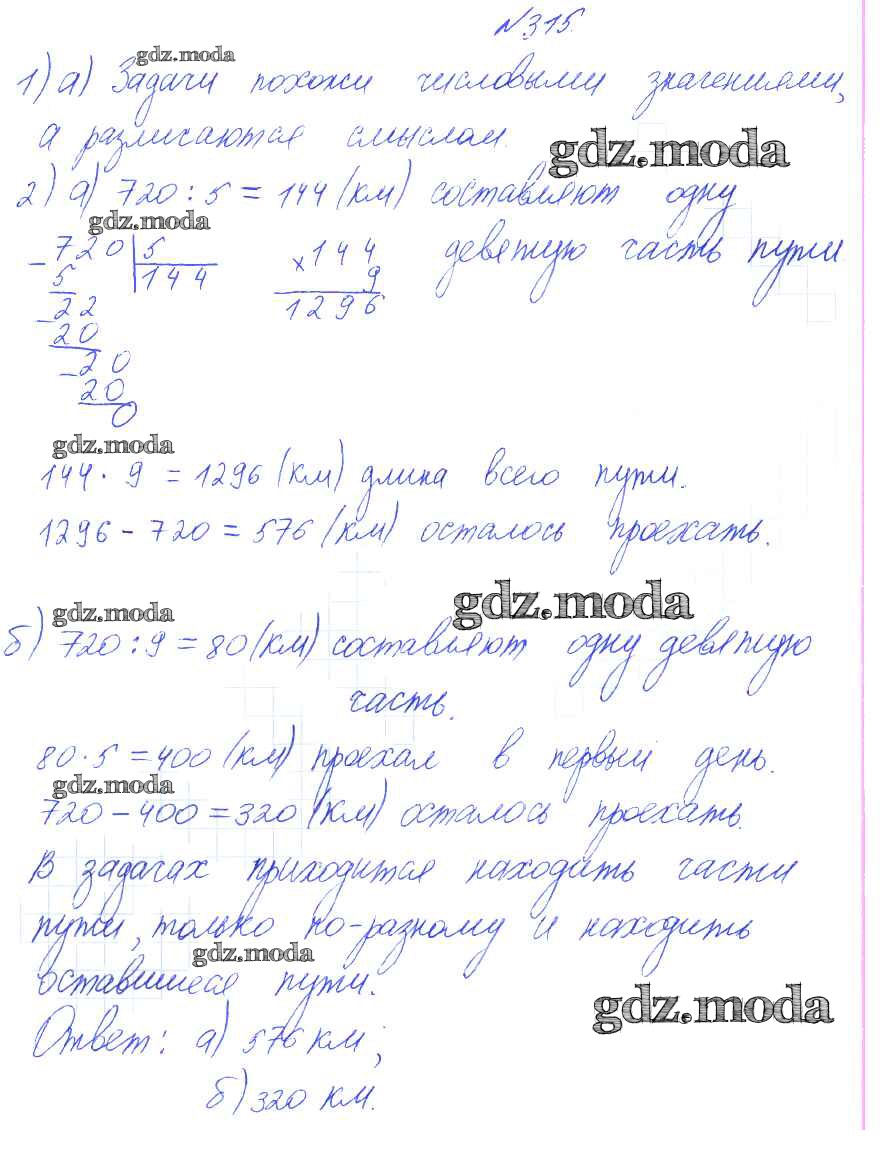 №315.
gdz.moda
1) а) Задачи похожи числовыми значениями,
а различаются смыслом.
gdz.moda
2) а) 720 : 5 = 144 (км) составляют одну
девятую часть пути.
gdz.moda
- 720 | 5
5 144
- 22
20
- 20
20
0
× 144
9
1296
gdz.moda
144 · 9 = 1296 (км) длина всего пути.
1296 - 720 = 576 (км) осталось проехать.
gdz.moda
gdz.moda
б) 720 : 9 = 80 (км) составляют одну девятую
часть.
80 · 5 = 400 (км) проехал в первый день.
gdz.moda
720 - 400 = 320 (км) осталось проехать.
В задачах приходится находить части
пути, только по-разному и находить
gdz.moda
оставшиеся пути.
gdz.moda
Ответ: а) 576 км;
б) 320 км.